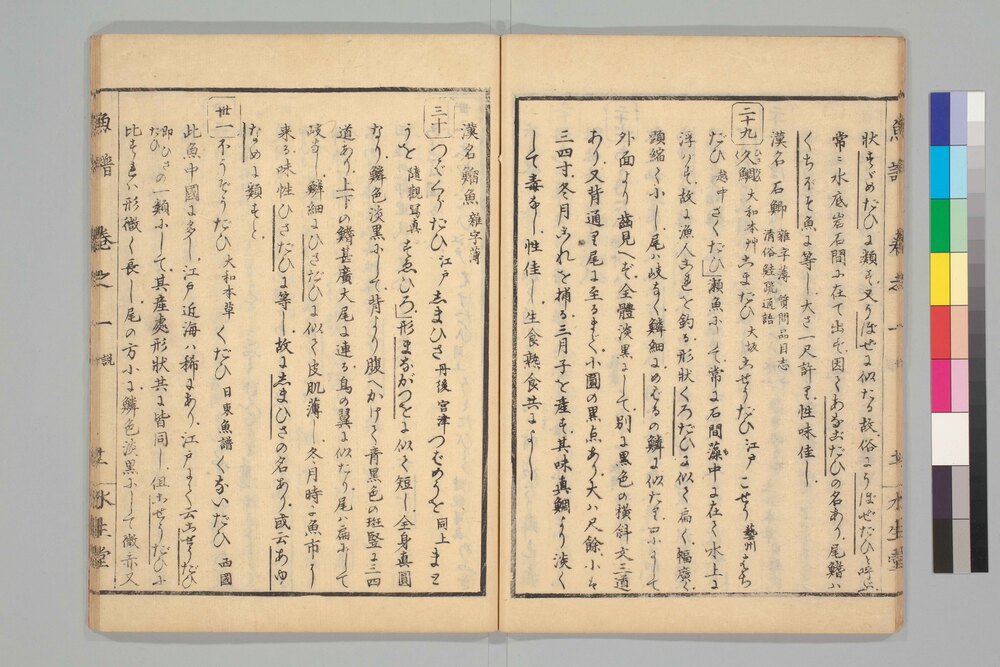 状すゞめたひに類す又りはせに似たる故俗にりはせたひと呼ぶ
常ニ水底岩石間に在て出ず因てあなごたひの名あり尾鰭ハ
くちほそ魚に等し大さ一尺許里性味佳し
漢名 石鯽 雑字簿 質問品目志 清俗 鮭疏通語
二十九 久鯛 大和本艸 しまたひ 大坂 しせうたひ 江戸 こせう 藝州
たひ 越中 さくたひ 瀬魚にして常に石間藻中に在て水上に
浮ハず故に漁人これを釣る形状くろたひに似て扁く幅廣く
頭縮く小し尾ハ岐なく鱗細にめばるの鱗に似たり口小にして
外面より齒見へず全體淡黒にして別に黒色の横斜文三道
あり又背通り尾に至るまて小圓の黒点あり大ハ尺餘小ハ
三四寸冬月これを捕る三月子を産す其味真鯛より淡く
して毒なし性佳し生食熟食共によし
漢名 鰡魚 雑字簿
三十 つばくらたひ 江戸 しまひさ 丹後 宮津 つばめうを 同上 まと
うを 隨觀寫真 すゑひろ 形まながつをに似て短し全身真圓
なり鱗色淡黒にして背より腹へかけて青黒色の斑竪に三四
道あり上下の鰭甚廣大尾に連る鳥の翼に似たり尾ハ扁にして
岐なし 鱗細にひさたひに似て皮肌薄し冬月時に魚市に
来る味性ひさたひに等し故にしまひさの名あり或云あゆ
なめに類すと
卅一 不うぞうたひ 大和本草 くたひ 日東魚譜 くないたひ 西國
此魚中國に多し江戸近海ハ稀にあり江戸にて云こせうたひ
即ひさたひの一類にして其産處形状共に皆同し但こせうたひに
比すれハ形微く長し尾の方小に鱗色淡黒にして微赤又
魚譜 巻之一 説 水生堂